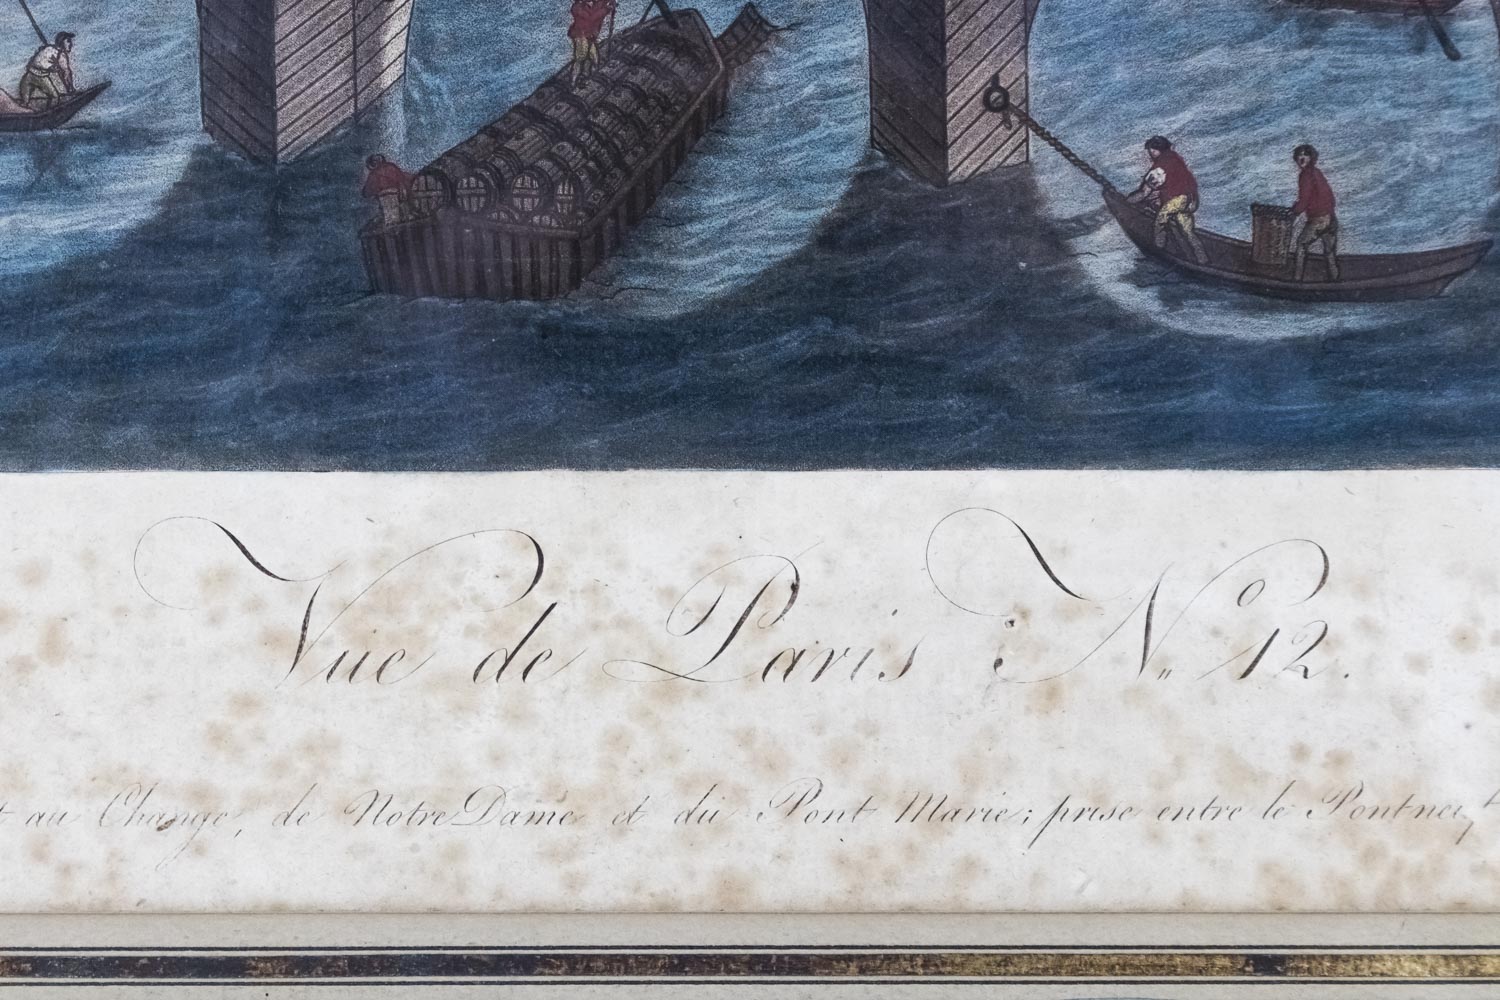 Vue de Paris N.º 12.
au Change, de Notre Dame et du Pont Marie; prise entre le Pontneuf